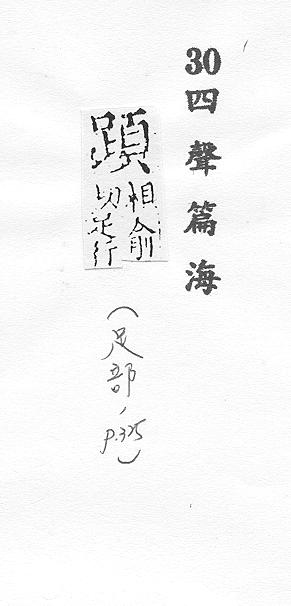 30四聲篇海
相俞
切足行
(足部, P.325)